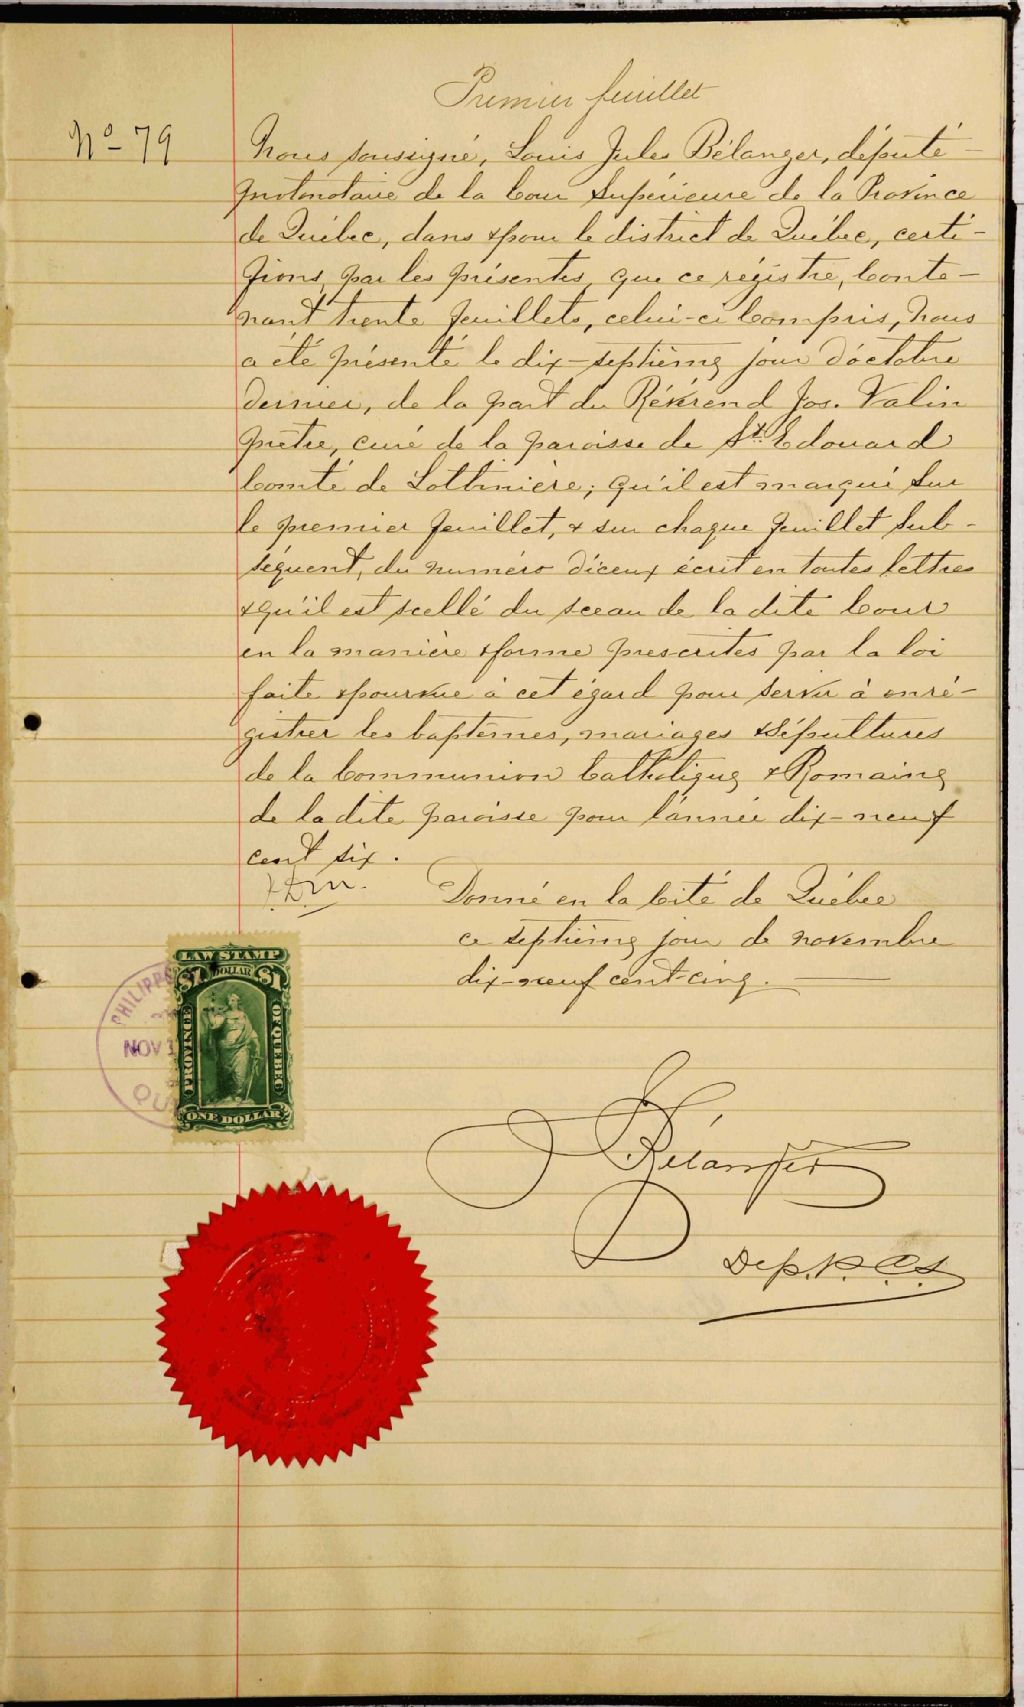 Premier feuillet
No- 79
Nous soussigné, Louis Jules Bélanger, député-
protonotaire de la Cour Supérieure de la Province
de Québec, dans & pour le district de Québec, certi-
fions, par les présentes, que ce régistre, conte-
nant trente feuillets, celui-ci compris, nous
a été présenté le dix-septième jour d'octobre
dernier, de la part du Révérend Jos. Valin
prêtre, curé de la paroisse de St. Edouard
Comté de Lotbinière; qu'il est marqué sur
le premier feuillet, & sur chaque feuillet sub-
séquent, du numéro d'iceux écrit en toutes lettres
& qu'il est scellé du sceau de la dite Cour
en la manière & forme prescrites par la loi
faite & pourvue à cet égard pour servir à enré-
gistrer les baptêmes, mariages & sépultures
de la Communion Catholique & Romaine
de la dite paroisse pour l'année dix-neuf
cent six.
Donné en la Cité de Québec
ce septième jour de novembre
dix-neuf cent-cinq.
LAW STAMP
$1 DOLLAR $1
PROVINCE
OF QUEBEC
ONE DOLLAR
NOV
Bélanger
Dep. P. C. S.